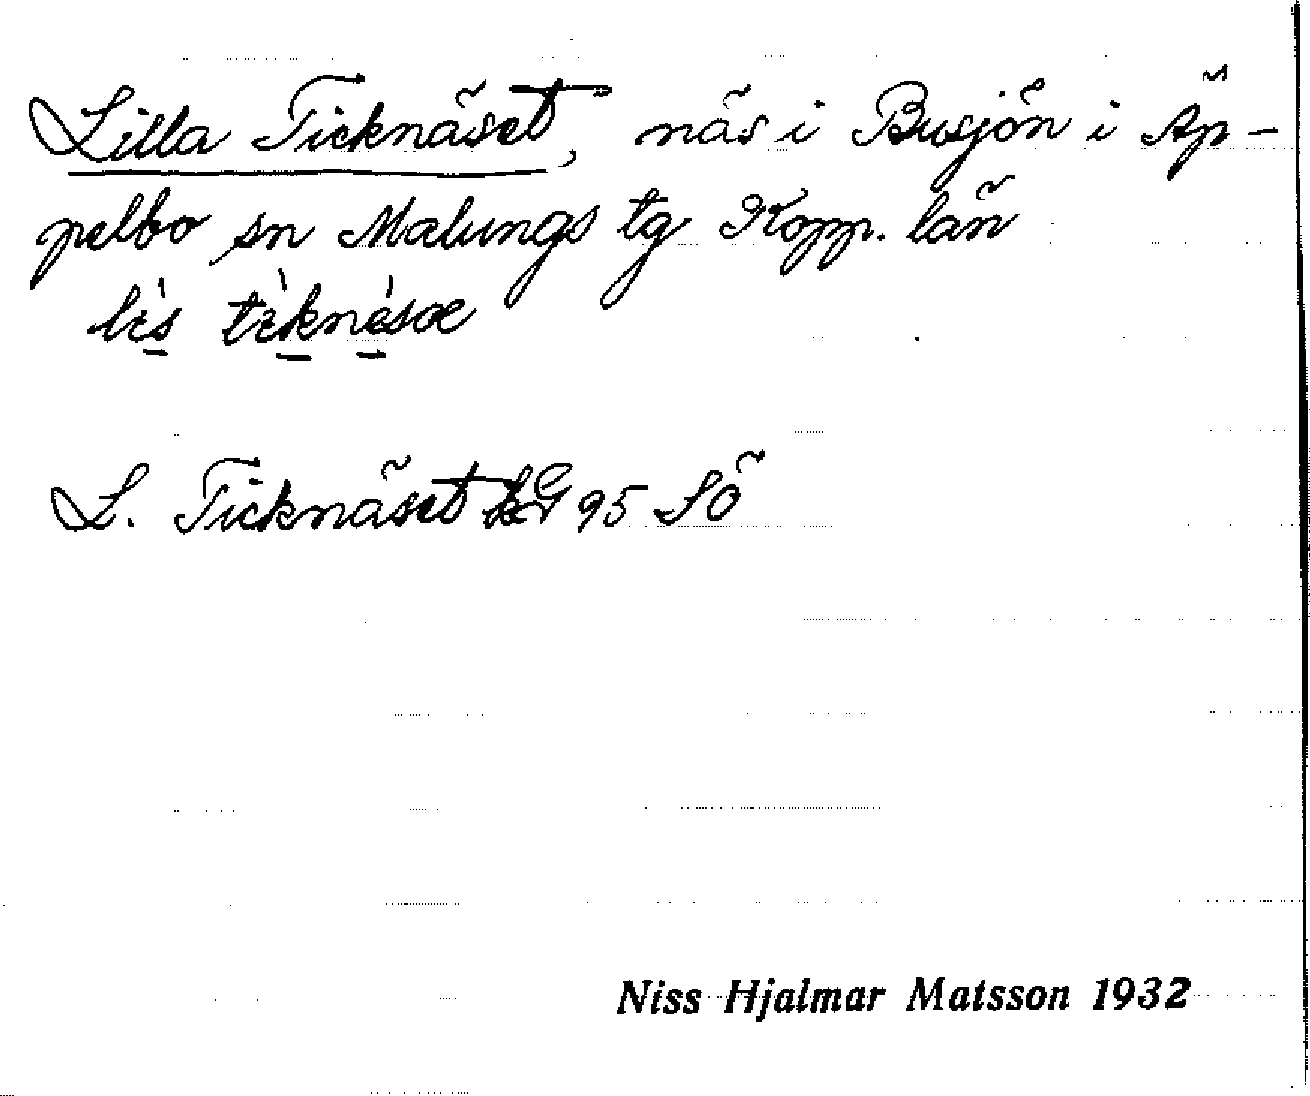 Lilla Ticknäset, näs i Busjön i Äp-
pelbo sn Malungs tg Kopp. län
L. Ticknäset kG 95 SÖ
Niss Hjalmar Matsson 1932